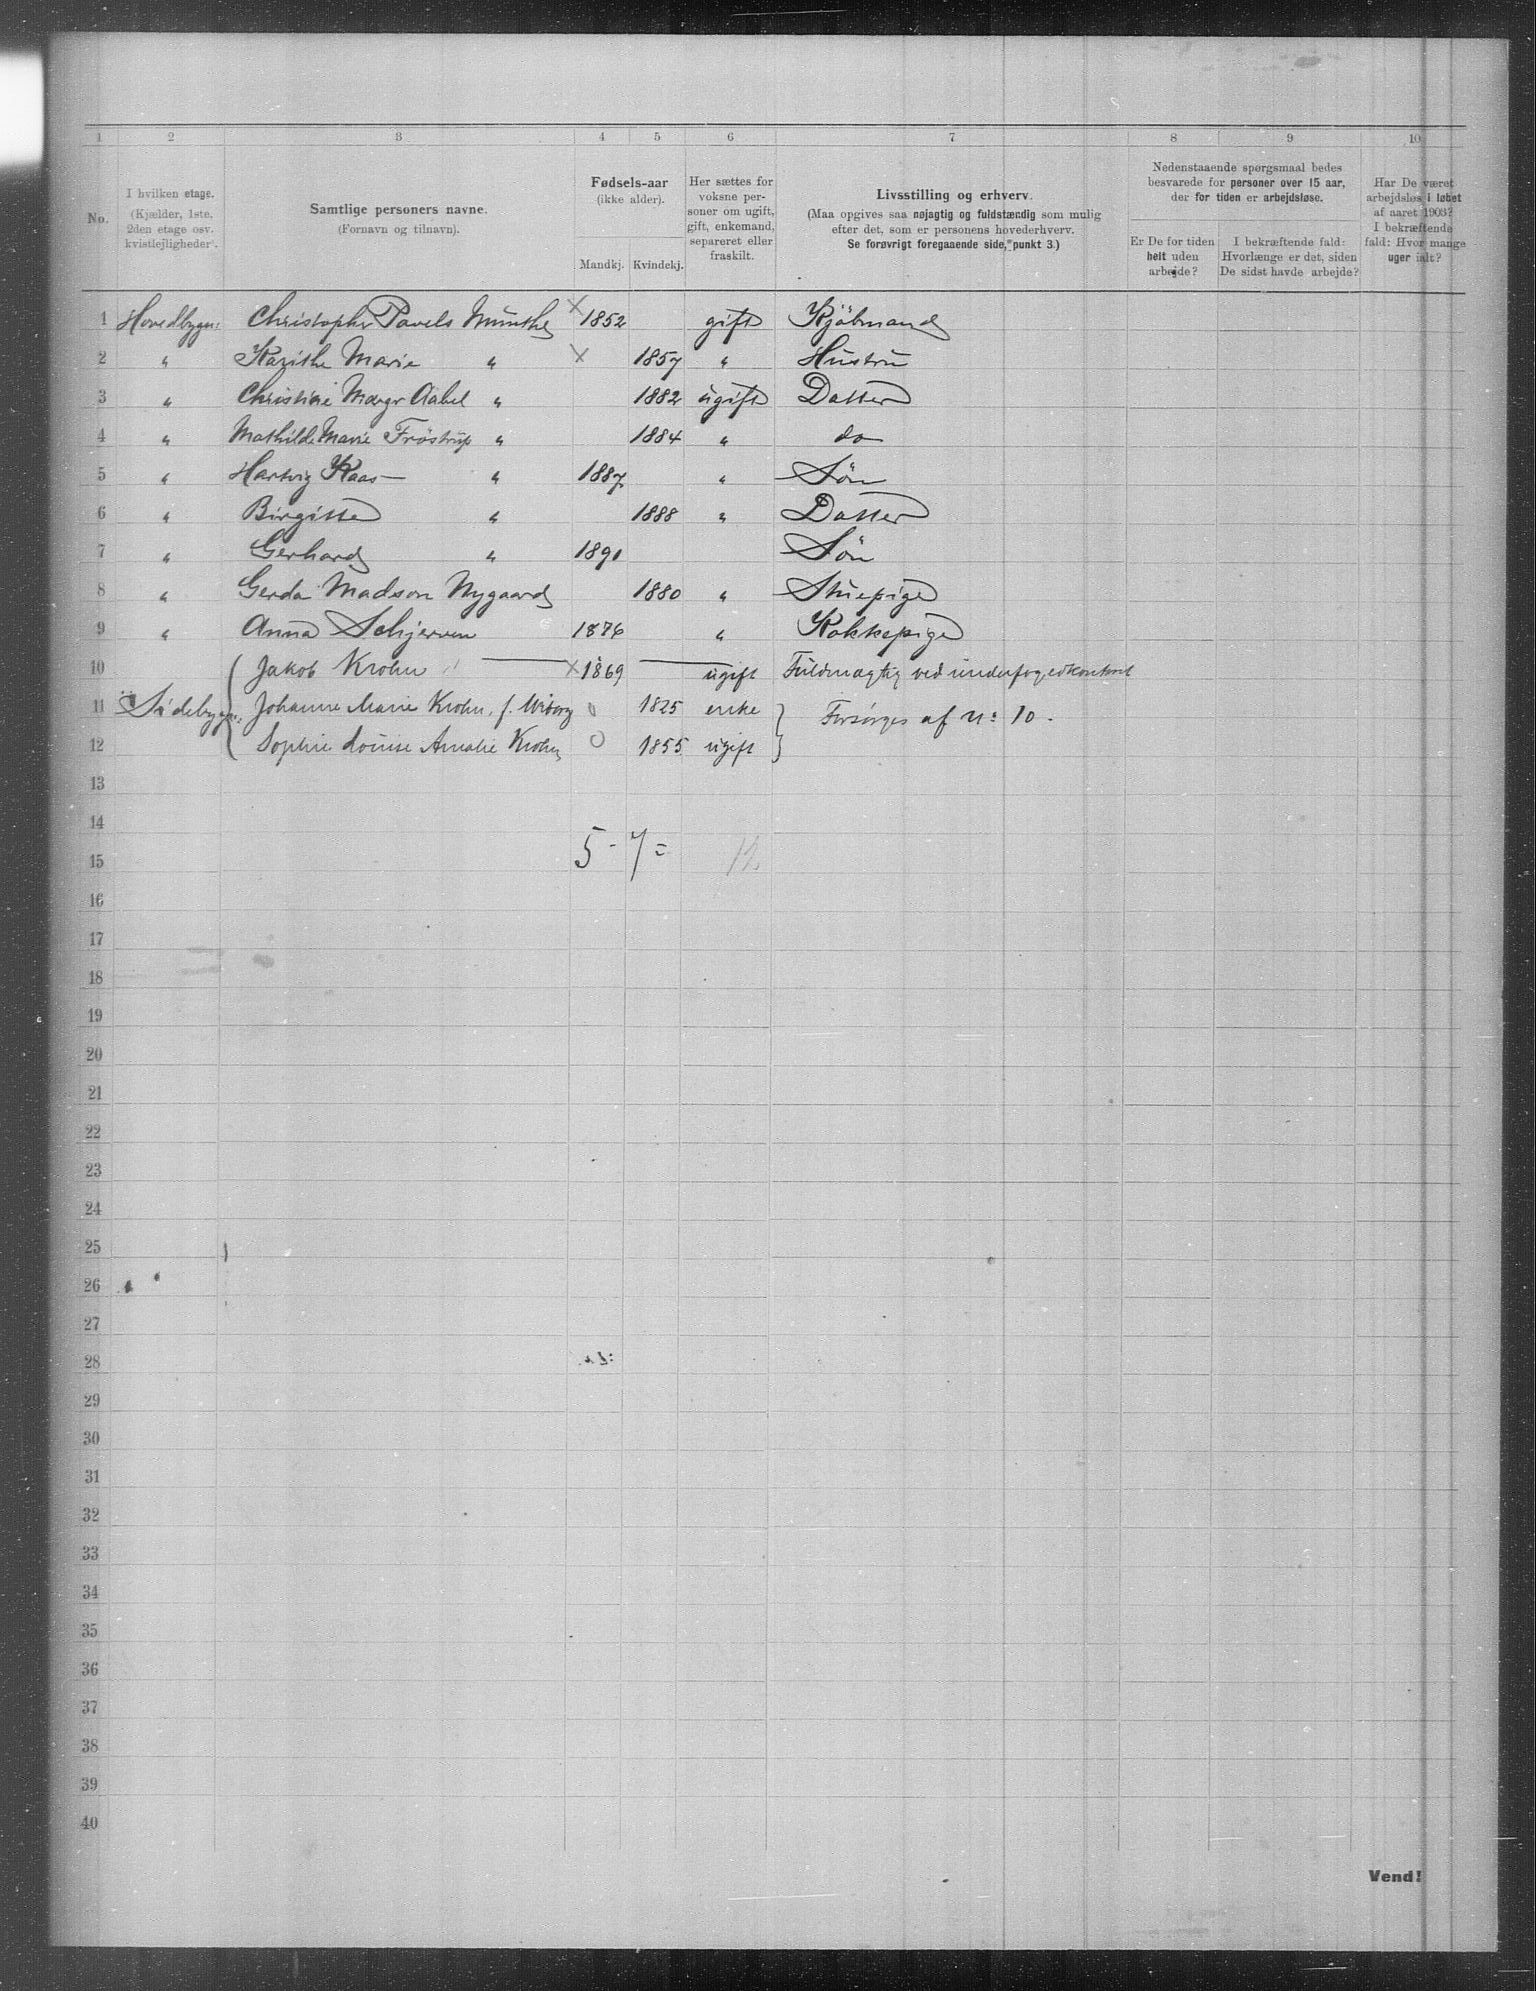 1 2 3 4 5 6 7 8 9 10
No.
I hvilken etage.
(Kjælder, 1ste,
2den etage osv.
kvistlejligheder).
Samtlige personers navne.
(Fornavn og tilnavn).
Fødsels-aar
(ikke alder).
Mandkj. Kvindekj.
Her sættes for
voksne per-
soner om ugift,
gift, enkemand,
separeret eller
fraskilt.
Livsstilling og erhverv.
(Maa opgives saa nøjagtig og fuldstændig som mulig
efter det, som er personens hovederhverv.
Se forøvrigt foregaaende side, punkt 3.)
Nedenstaaende spørgsmaal bedes
besvarede for personer over 15 aar,
der for tiden er arbejdsløse.
Er De for tiden
helt uden
arbejde?
I bekræftende fald:
Hvorlænge er det, siden
De sidst havde arbejde?
Har De været
arbejdsløs i løbet
af aaret 1903?
I bekræftende
fald: Hvor mange
uger ialt?
1 Hovedbygn: Christopher Pavels Munthe × 1852 gift Kjöbmand
2 " Karithe Marie " × 1857 " Hustru
3 " Christine Margr Aabel " 1882 ugift Datter
4 " Mathilde Marie Fröstrup " 1884 " do
5 " Hartvig Kaas — " 1887 " Sön
6 " Birgitte " 1888 " Datter
7 " Gerhard " 1890 Sön
8 " Gerda Madson Nygaard 1880 " Stuepige
9 " Anna Schjerven 1876 " Kokkepige
10 Jakob Krohn — × 1869 — ugift Fuldmægtig ved underfogedkontoret
11 Sidebygn: Johanne Marie Krohn, f. Wiborg 0 1825 enke } Forsørges af No 10.
12 Sophie Louise Amalie Krohn 0 1855 ugift
13
14
5 - 7 = 12
15
16
17
18
19
20
21
22
23
24
25
26
27
28
29
30
31
32
33
34
35
36
37
38
39
40
Vend!